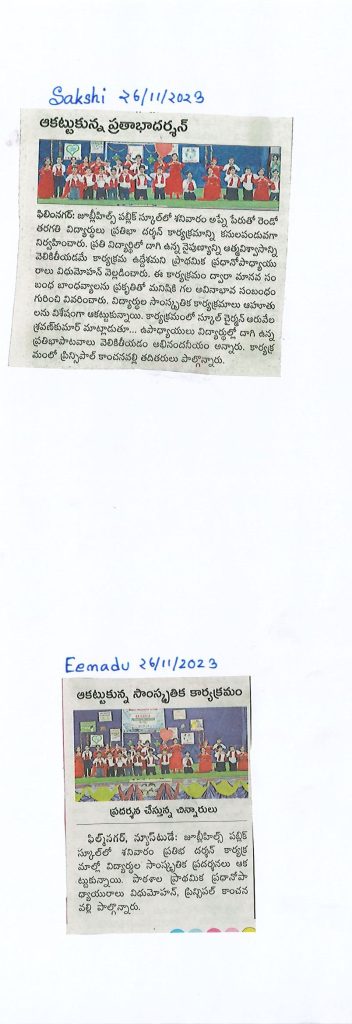 Sakshi 26/11/2023
ఆకట్టుకున్న ప్రతాభాదర్శన్
ఫిలింనగర్: జూబ్లీహిల్స్ పబ్లిక్ స్కూల్‌లో శనివారం అప్నే పేరుతో రెండో
తరగతి విద్యార్థులు ప్రతిభా దర్శన్ కార్యక్రమాన్ని కనులపండువగా
నిర్వహించారు. ప్రతి విద్యార్థిలో దాగి ఉన్న నైపుణ్యాన్ని ఆత్మవిశ్వాసాన్ని
వెలికితీయడమే కార్యక్రమ ఉద్దేశమని ప్రాథమిక ప్రధానోపాధ్యాయు
రాలు విధుమోహన్ వెల్లడించారు. ఈ కార్యక్రమం ద్వారా మానవ సం
బంధ బాంధవ్యాలను ప్రకృతితో మనిషికి గల అవినాభావ సంబంధం
గురించి వివరించారు. విద్యార్థుల సాంస్కృతిక కార్యక్రమాలు ఆహూతు
లను విశేషంగా ఆకట్టుకున్నాయి. కార్యక్రమంలో స్కూల్ చైర్మన్ ఆరువేల
శ్రవణ్‌కుమార్ మాట్లాడుతూ... ఉపాధ్యాయులు విద్యార్థుల్లో దాగి ఉన్న
ప్రతిభాపాటవాలు వెలికితీయడం అభినందనీయం అన్నారు. కార్యక్ర
మంలో ప్రిన్సిపాల్ కాంచనవల్లి తదితరులు పాల్గొన్నారు.
Eemadu 26/11/2023
ఆకట్టుకున్న సాంస్కృతిక కార్యక్రమం
ప్రదర్శన చేస్తున్న చిన్నారులు
ఫిల్మ్‌నగర్, న్యూస్‌టుడే: జూబ్లీహిల్స్ పబ్లిక్
స్కూల్‌లో శనివారం ప్రతిభ దర్శన్ కార్యక్ర
మాల్లో విద్యార్థుల సాంస్కృతిక ప్రదర్శనలు ఆక
ట్టుకున్నాయి. పాఠశాల ప్రాథమిక ప్రధానోపా
ధ్యాయురాలు విధుమోహన్, ప్రిన్సిపల్ కాంచన
వల్లి పాల్గొన్నారు.